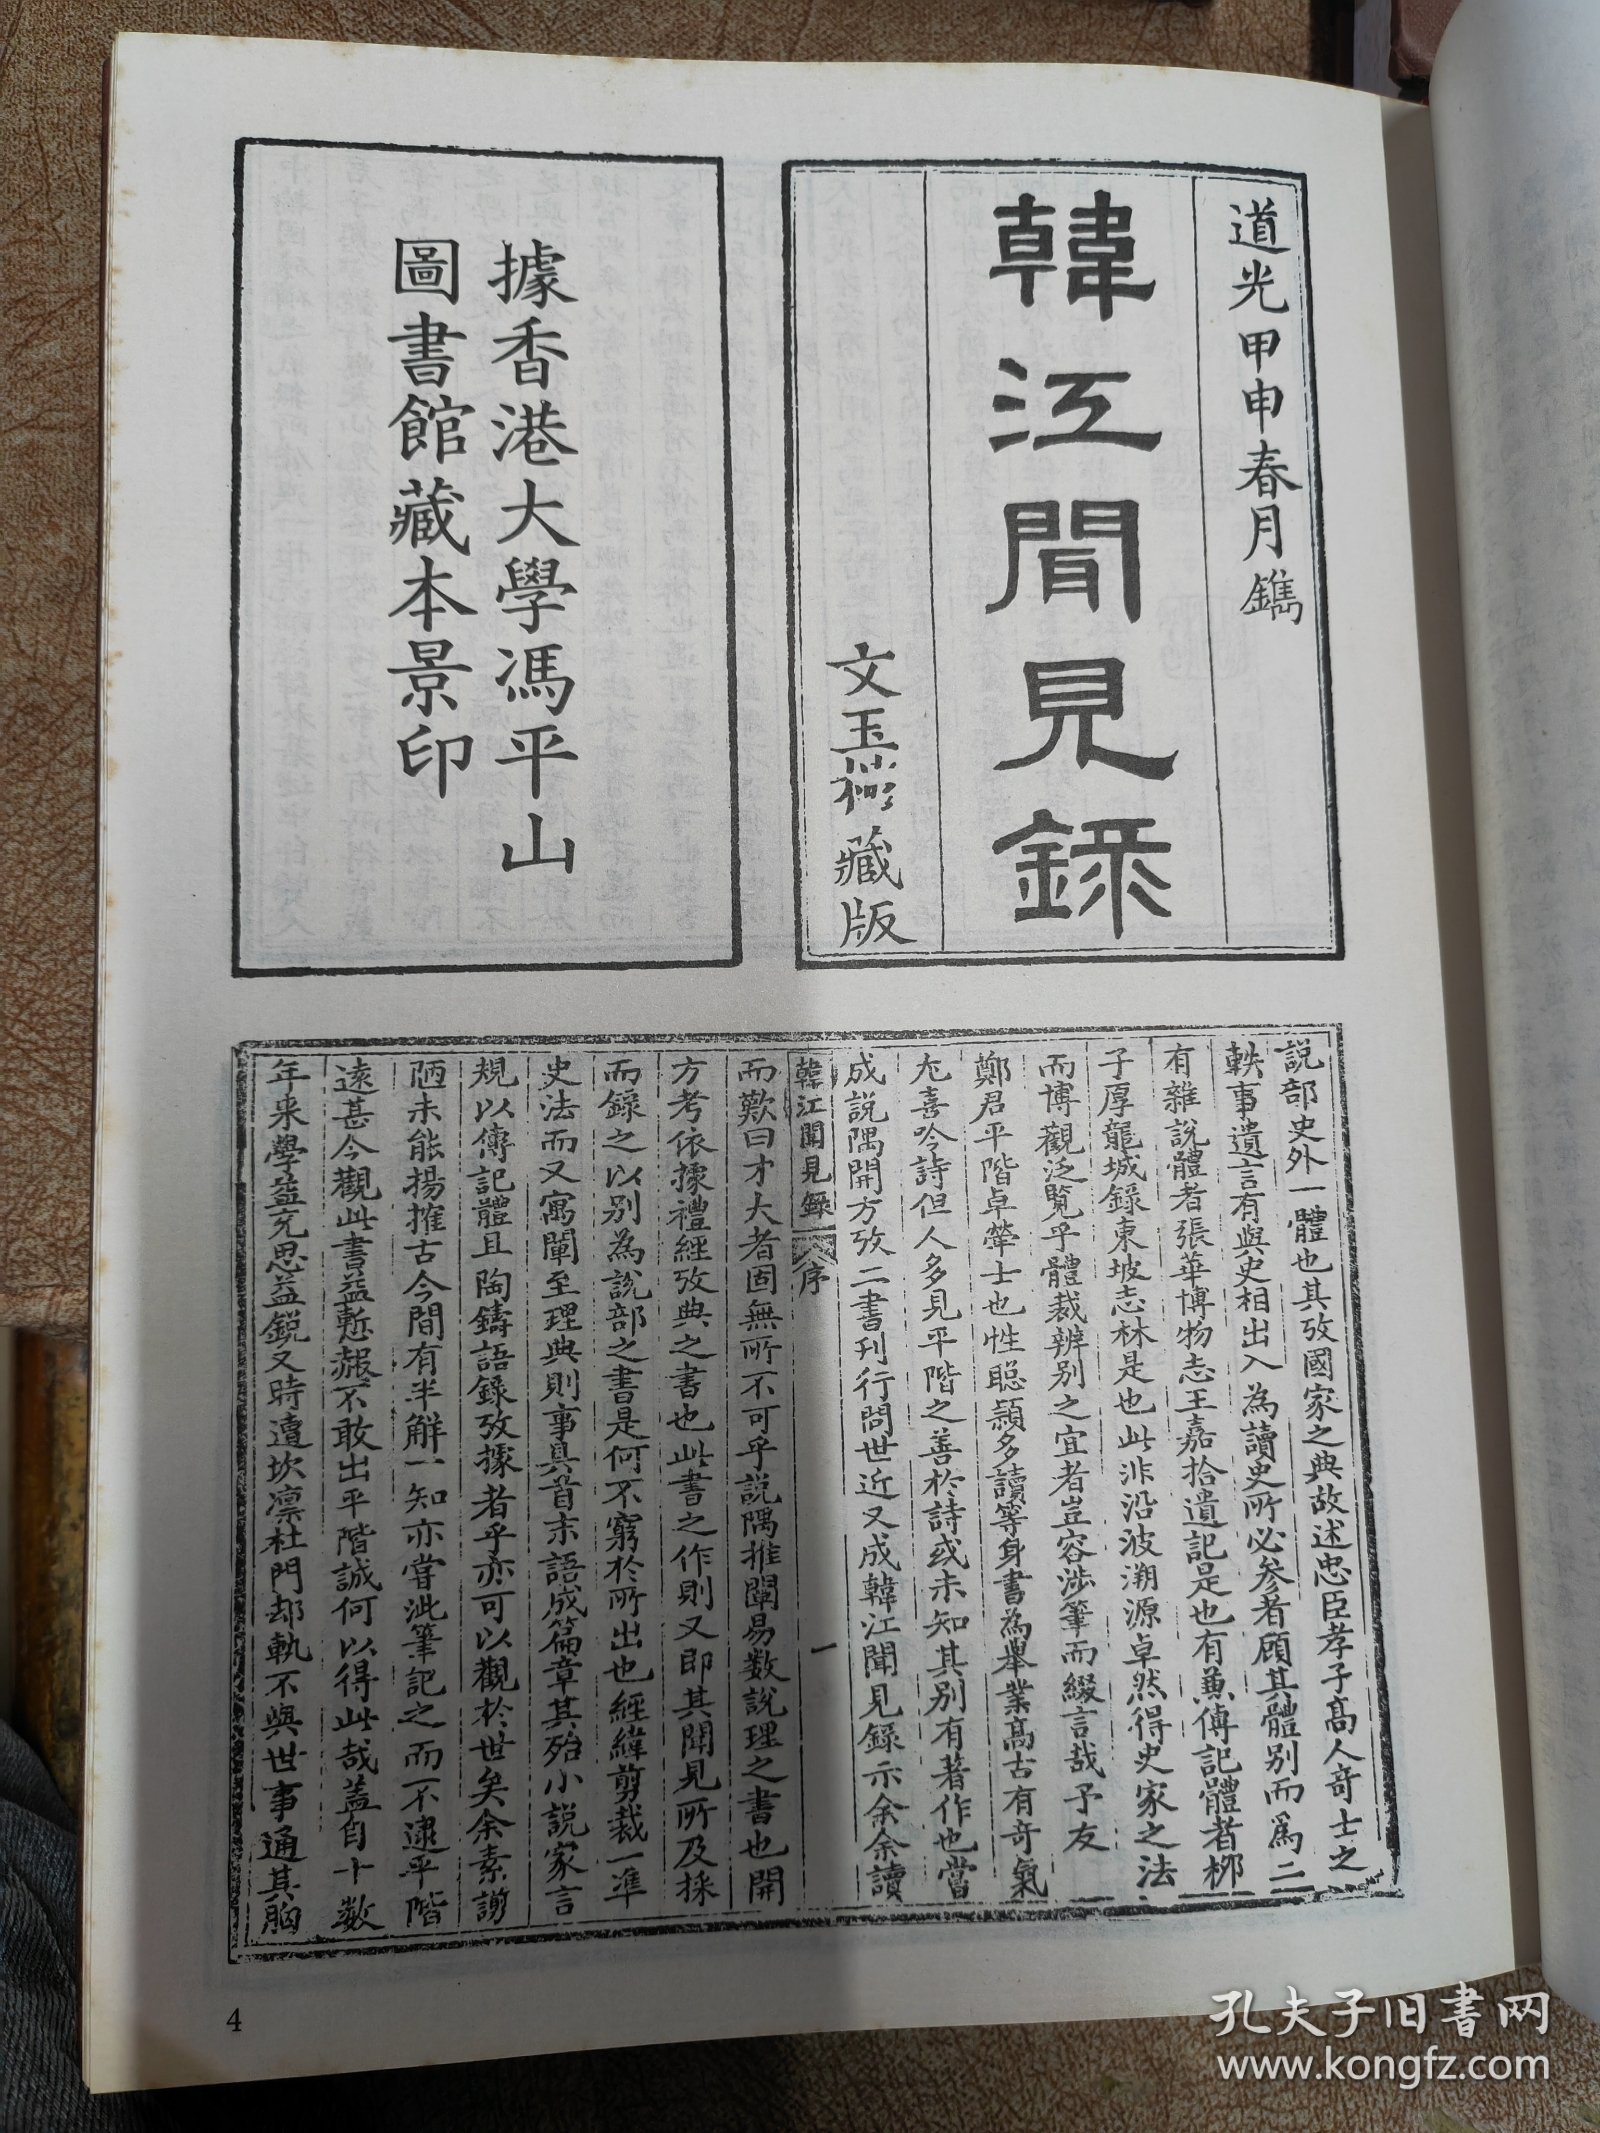 道光甲申春月鐫
韓江聞見錄
文玉樓藏版
據香港大學馮平山
圖書館藏本景印
說部史外一體也其攷國家之典故述忠臣孝子高人奇士之
軼事遺言有與史相出入為讀史所必參者顧其體別而爲二
有雜說體者張華博物志王嘉拾遺記是也有兼傳記體者柳
子厚龍城錄東坡志林是也此泝沿波溯源卓然得史家之法
而博觀泛覽乎體裁辨別之宜者豈容涉筆而綴言哉予友
鄭君平階卓犖士也性聰穎多讀等身書為舉業高古有奇氣
尤喜吟詩但人多見平階之善於詩或未知其別有著作也嘗
成說隅開方攷二書刊行問世近又成韓江聞見錄示余余讀
韓江聞見錄 序 一
而歎曰才大者固無所不可乎說隅推闡易數說理之書也開
方考依據禮經攷典之書也此書之作則又即其聞見所及採
而錄之以別為說部之書是何不窮於所出也經緯剪裁一準
史法而又寓闡至理典則事具首末語成篇章其殆小說家言
規以傳記體且陶鑄語錄攷據者乎亦可以觀於世矣余素謭
陋未能揚搉古今間有半解一知亦嘗泚筆記之而不逮平階
遠甚今觀此書益慙赧不敢出平階誠何以得此哉蓋自十數
年來學益充思益銳又時遭坎凛杜門却軌不與世事通其胸
4
孔夫子旧书网
www.kongfz.com